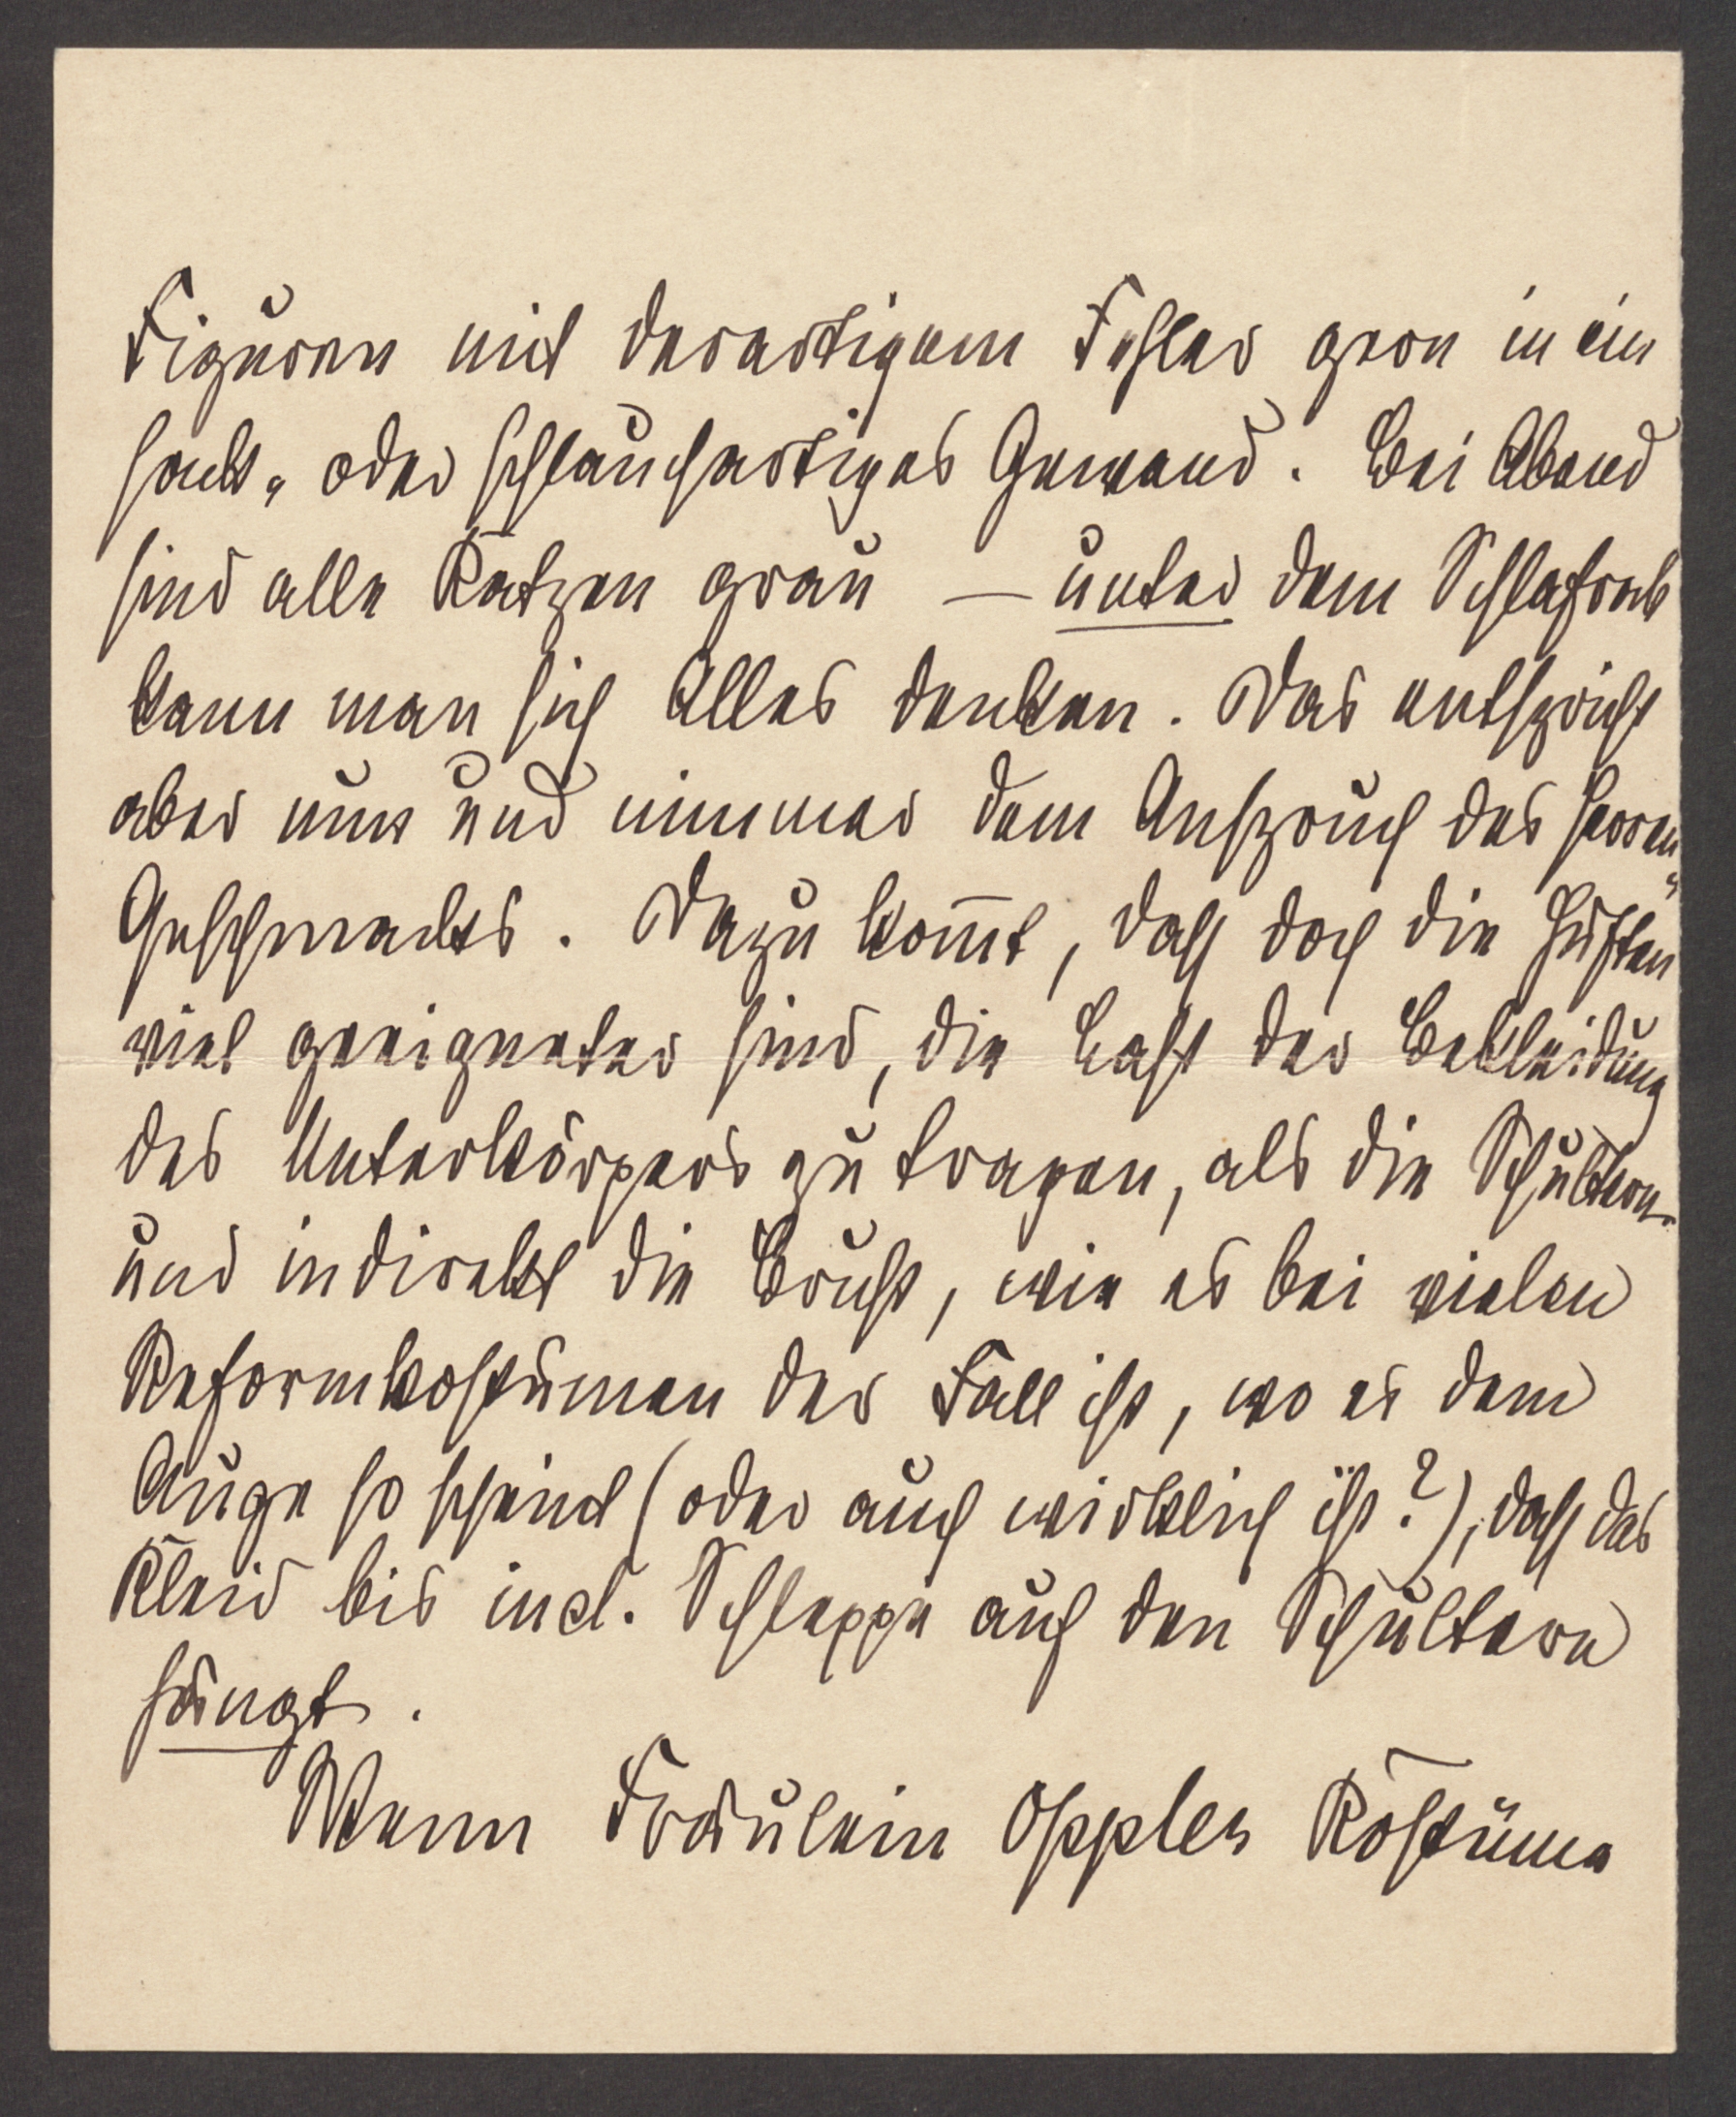 Figuren mit derartigem Fehler gern in ein
sack- oder schlauchartiges Gewand. Bei Abend
sind alle Katzen grau — unter dem Schlafrock
kann man sich Alles denken. Das entspricht
aber nun und nimmer dem Anspruch des Herren-
Geschmackes. Dazu kom̄t, dass doch die Hüften
viel geeigneter sind, die Last der Bekleidung
des Unterkörpers zu tragen, als die Schultern
und indirekt die Brust, wie es bei vielen
Reformkostümen der Fall ist, wo es dem
Auge so scheint (oder auch wirklich ist?), dass das
Kleid bis incl. Schleppe auf den Schultern
hängt.
Wenn Fräulein Oppler Kostüme